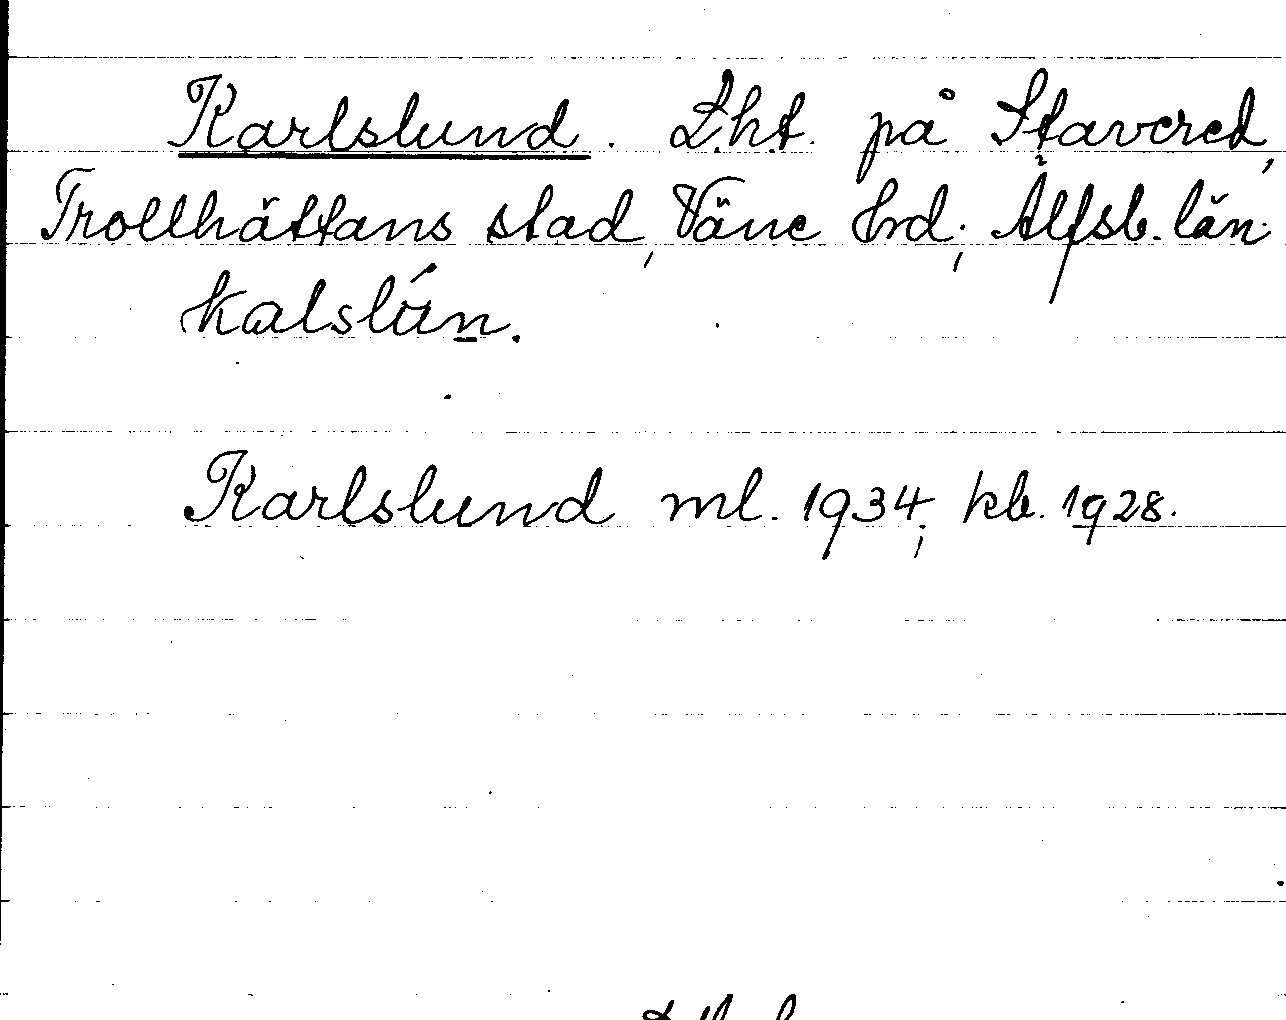 Karlslund. Lht. på Stavered,
Trollhättans stad, Väne hrd; Älfsb. län.
kalslún.
Karlslund ml. 1934; kb. 1928.